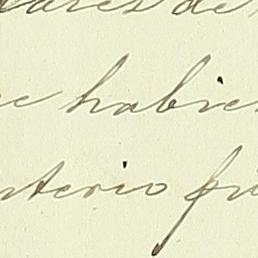 ares de
e habie
nterio fu